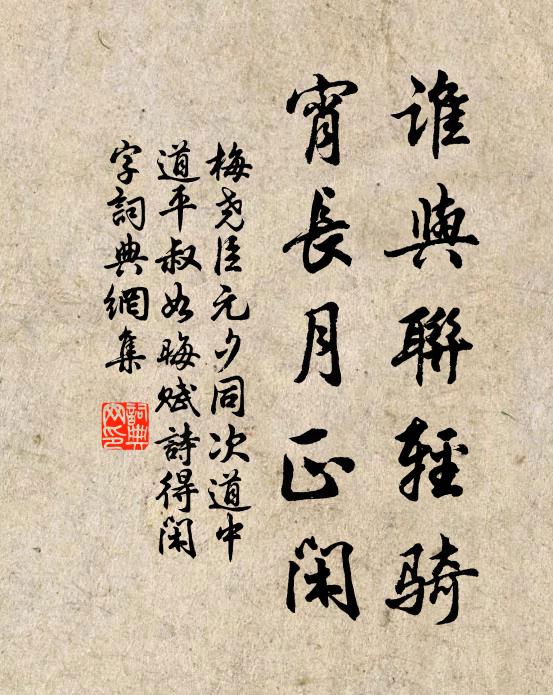 誰與聯輕騎
宵長月正閑
梅堯臣元夕同次道中
道平叔如晦賦詩得閑
字詞典網集
詞典网印